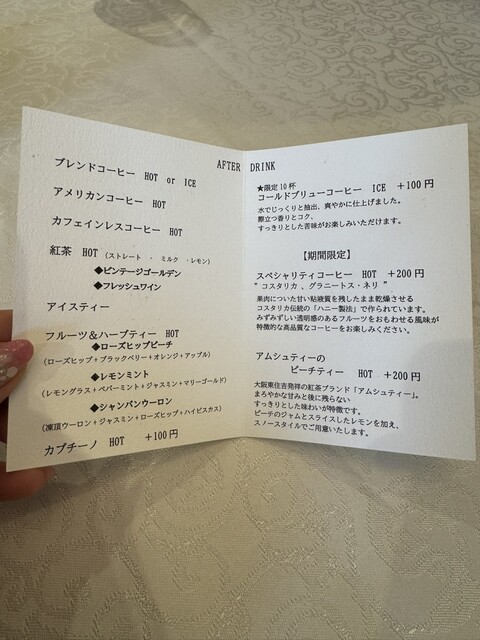 AFTER DRINK
ブレンドコーヒー HOT or ICE
アメリカンコーヒー HOT
カフェインレスコーヒー HOT
紅茶 HOT (ストレート ・ ミルク ・レモン)
◆ビンテージゴールデン
◆フレッシュワイン
アイスティー
フルーツ&ハーブティー HOT
◆ローズヒップピーチ
(ローズヒップ+ブラックベリー+オレンジ+アップル)
◆レモンミント
(レモングラス+ペパーミント+ジャスミン+マリーゴールド)
◆シャンパンウーロン
(凍頂ウーロン+ジャスミン+ローズヒップ+ハイビスカス)
カプチーノ HOT +100円
★限定10杯
コールドブリューコーヒー ICE +100円
水でじっくりと抽出、爽やかに仕上げました。
際立つ香りとコク、
すっきりとした苦味がお楽しみいただけます。
【期間限定】
スペシャリティコーヒー HOT +200円
" コスタリカ 、グラニートス・ネリ "
果肉についた甘い粘液質を残したまま乾燥させる
コスタリカ伝統の「ハニー製法」で作られています。
みずみずしい透明感のあるフルーツをおもわせる風味が
特徴的な高品質なコーヒーをお楽しみください。
アムシュティーの
ピーチティー HOT +200円
大阪東住吉発祥の紅茶ブランド「アムシュティー」。
まろやかな甘みと後に残らない
すっきりとした味わいが特徴です。
ピーチのジャムとスライスしたレモンを加え、
スノースタイルでご用意いたします。